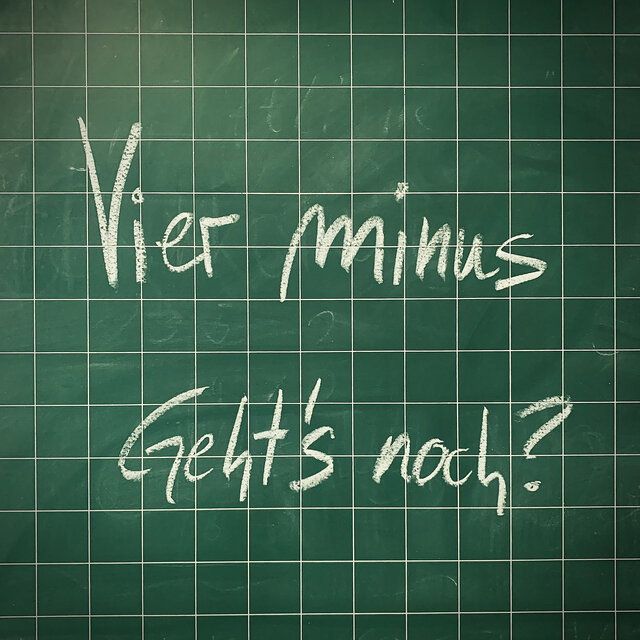 Vier minus
Geht's noch?